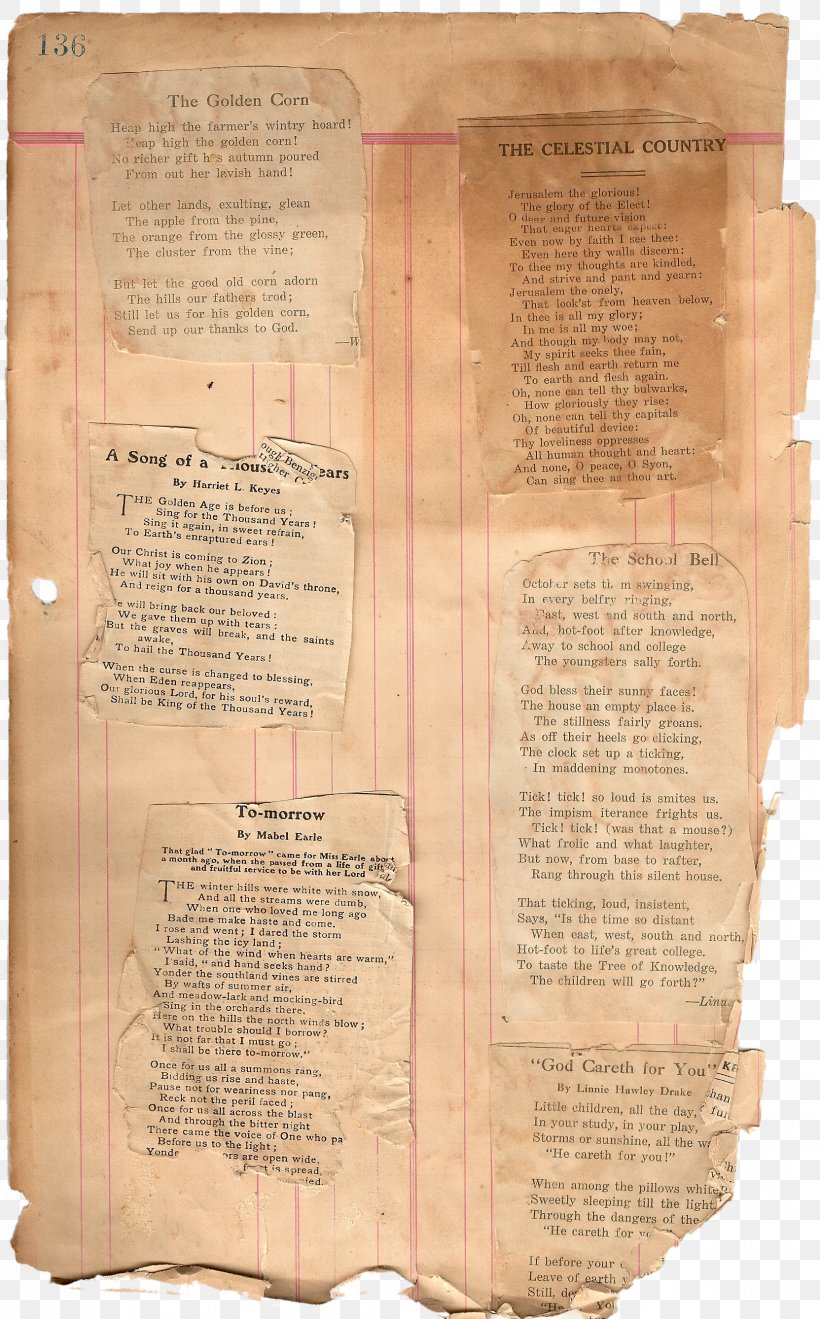 136
The Golden Corn
Heap high the farmer's wintry hoard!
Heap high the golden corn!
No richer gift has autumn poured
From out her lavish hand!
Let other lands, exulting, glean
The apple from the pine,
The orange from the glossy green,
The cluster from the vine;
But let the good old corn adorn
The hills our fathers trod;
Still let us for his golden corn,
Send up our thanks to God.
—W
A Song of a Years
By Harriet L. Keyes
THE Golden Age is before us;
Sing for the Thousand Years!
Sing it again, in sweet refrain,
To Earth's enraptured ears!
Our Christ is coming to Zion;
What joy when he appears!
He will sit with his own on David's throne,
And reign for a thousand years.
He will bring back our beloved:
We gave them up with tears:
But the graves will break, and the saints
awake,
To hail the Thousand Years!
When the curse is changed to blessing,
When Eden reappears,
Our glorious Lord, for his soul's reward,
Shall be King of the Thousand Years!
To-morrow
By Mabel Earle
That glad "To-morrow" came for Miss Earle about
a month ago, when she passed from a life of gift
and fruitful service to be with her Lord
THE winter hills were white with snow,
And all the streams were dumb,
When one who loved me long ago
Bade me make haste and come.
I rose and went; I dared the storm
Lashing the icy land;
"What of the wind when hearts are warm,"
I said, "and hand seeks hand?
Yonder the southland vines are stirred
By wafts of summer air,
And meadow-lark and mocking-bird
Sing in the orchards there.
Here on the hills the north winds blow;
What trouble should I borrow?
It is not far that I must go;
I shall be there to-morrow."
Once for us all a summons rang,
Bidding us rise and haste,
Pause not for weariness nor pang,
Reck not the peril faced;
Once for us all across the blast
And through the bitter night
There came the voice of One who pa
Before us to the light;
Yonde ors are open wide,
is spread,
THE CELESTIAL COUNTRY
Jerusalem the glorious!
The glory of the Elect!
O dear and future vision
That eager hearts expect:
Even now by faith I see thee:
Even here thy walls discern:
To thee my thoughts are kindled,
And strive and pant and yearn:
Jerusalem the onely,
That look'st from heaven below,
In thee is all my glory;
In me is all my woe;
And though my body may not,
My spirit seeks thee fain,
Till flesh and earth return me
To earth and flesh again.
Oh, none can tell thy bulwarks,
How gloriously they rise:
Oh, none can tell thy capitals
Of beautiful device:
Thy loveliness oppresses
All human thought and heart:
And none, O peace, O Syon,
Can sing thee as thou art.
The School Bell
October sets them swinging,
In every belfry ringing,
East, west and south and north,
And, hot-foot after knowledge,
Away to school and college
The youngsters sally forth.
God bless their sunny faces!
The house an empty place is.
The stillness fairly groans.
As off their heels go clicking,
The clock set up a ticking,
In maddening monotones.
Tick! tick! so loud is smites us.
The impism iterance frights us.
Tick! tick! (was that a mouse?)
What frolic and what laughter,
But now, from base to rafter,
Rang through this silent house.
That ticking, loud, insistent,
Says, "Is the time so distant
When east, west, south and north,
Hot-foot to life's great college.
To taste the Tree of Knowledge,
The children will go forth?"
"God Careth for You"
By Linnie Hawley Drake
Little children, all the day,
In your study, in your play,
Storms or sunshine, all the w
"He careth for you!"
When among the pillows white
Sweetly sleeping till the light
Through the dangers of the
"He careth for
If before your
Leave of earth
Still,
"He